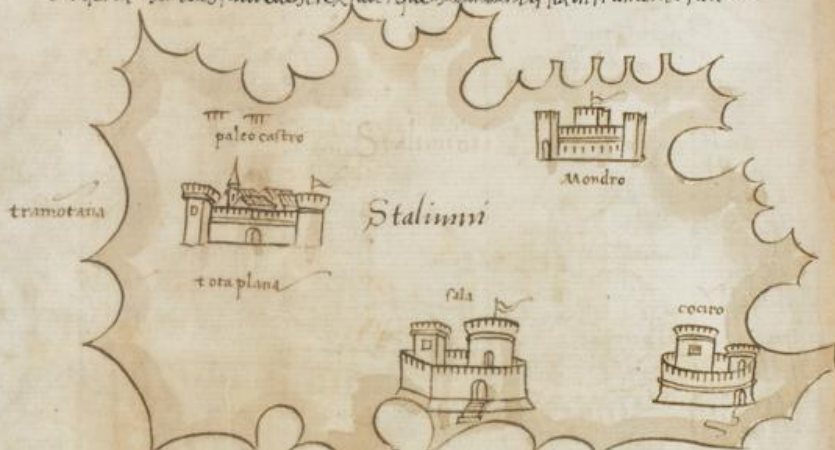 paleo castro
Mondro
tramotana
Staliunni
tota plana
sala
cociro